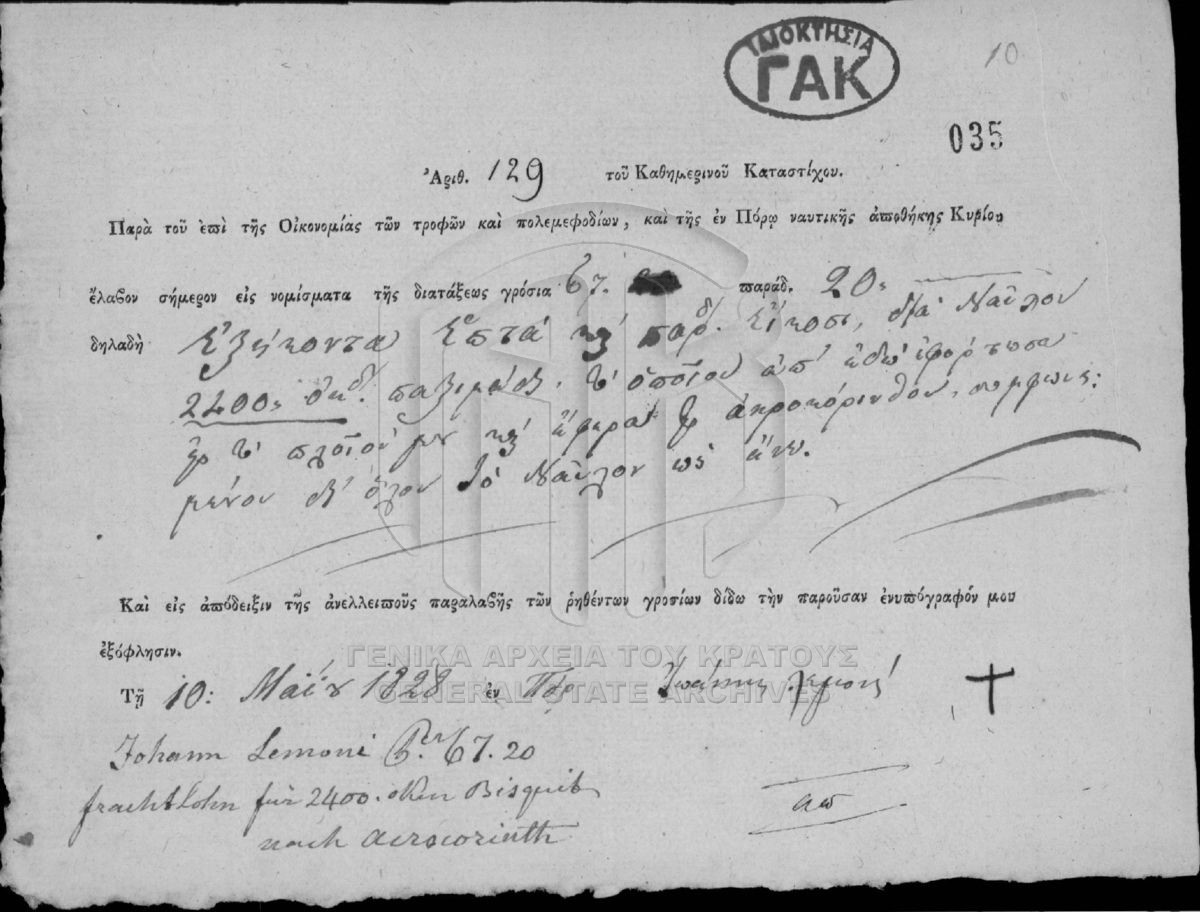 ΙΔΙΟΚΤΗΣΙΑ
ΓΑΚ
10
035
Ἀριθ. 129 τοῦ Καθημερινοῦ Καταστίχου.
Παρὰ τοῦ ἐπὶ τῆς Οἰκονομίας τῶν τροφῶν καὶ πολεμεφοδίων, καὶ τῆς ἐν Πόρῳ ναυτικῆς ἀποθήκης Κυρίου
ἔλαβον σήμερον εἰς νομίσματα τῆς διατάξεως γρόσια 67. παράδ. 20.
δηλαδὴ ἑξήκοντα ἑπτὰ καὶ παρδ. εἴκοσι, διὰ Ναῦλον
2400. ὀκδ. παξιμάδι, τὸ ὁποῖον ἀπ' ἐδῶ ἐφόρτωσα
τὸ πλοῖόν μου καὶ ἔφερα ἀκροκόρινθον, συμφωνι:
μένον δι' ὅλον τὸ Ναῦλον ὡς ἄνω.
Καὶ εἰς ἀπόδειξιν τῆς ἀνελλειποῦς παραλαβῆς τῶν ῥηθέντων γροσίων δίδω τὴν παροῦσαν ἐνυπόγραφόν μου
ἐξόφλησιν.
ΓΕΝΙΚΑ ΑΡΧΕΙΑ ΤΟΥ ΚΡΑΤΟΥΣ
GENERAL STATE ARCHIVES
Τῇ 10: Μαΐου 1828 ἐν Πόρ Ἰωάννης λεμονὴ
Johann Lemoni 67.20
frachtlohn für 2400. oken Bisquit
nach acrocorinth